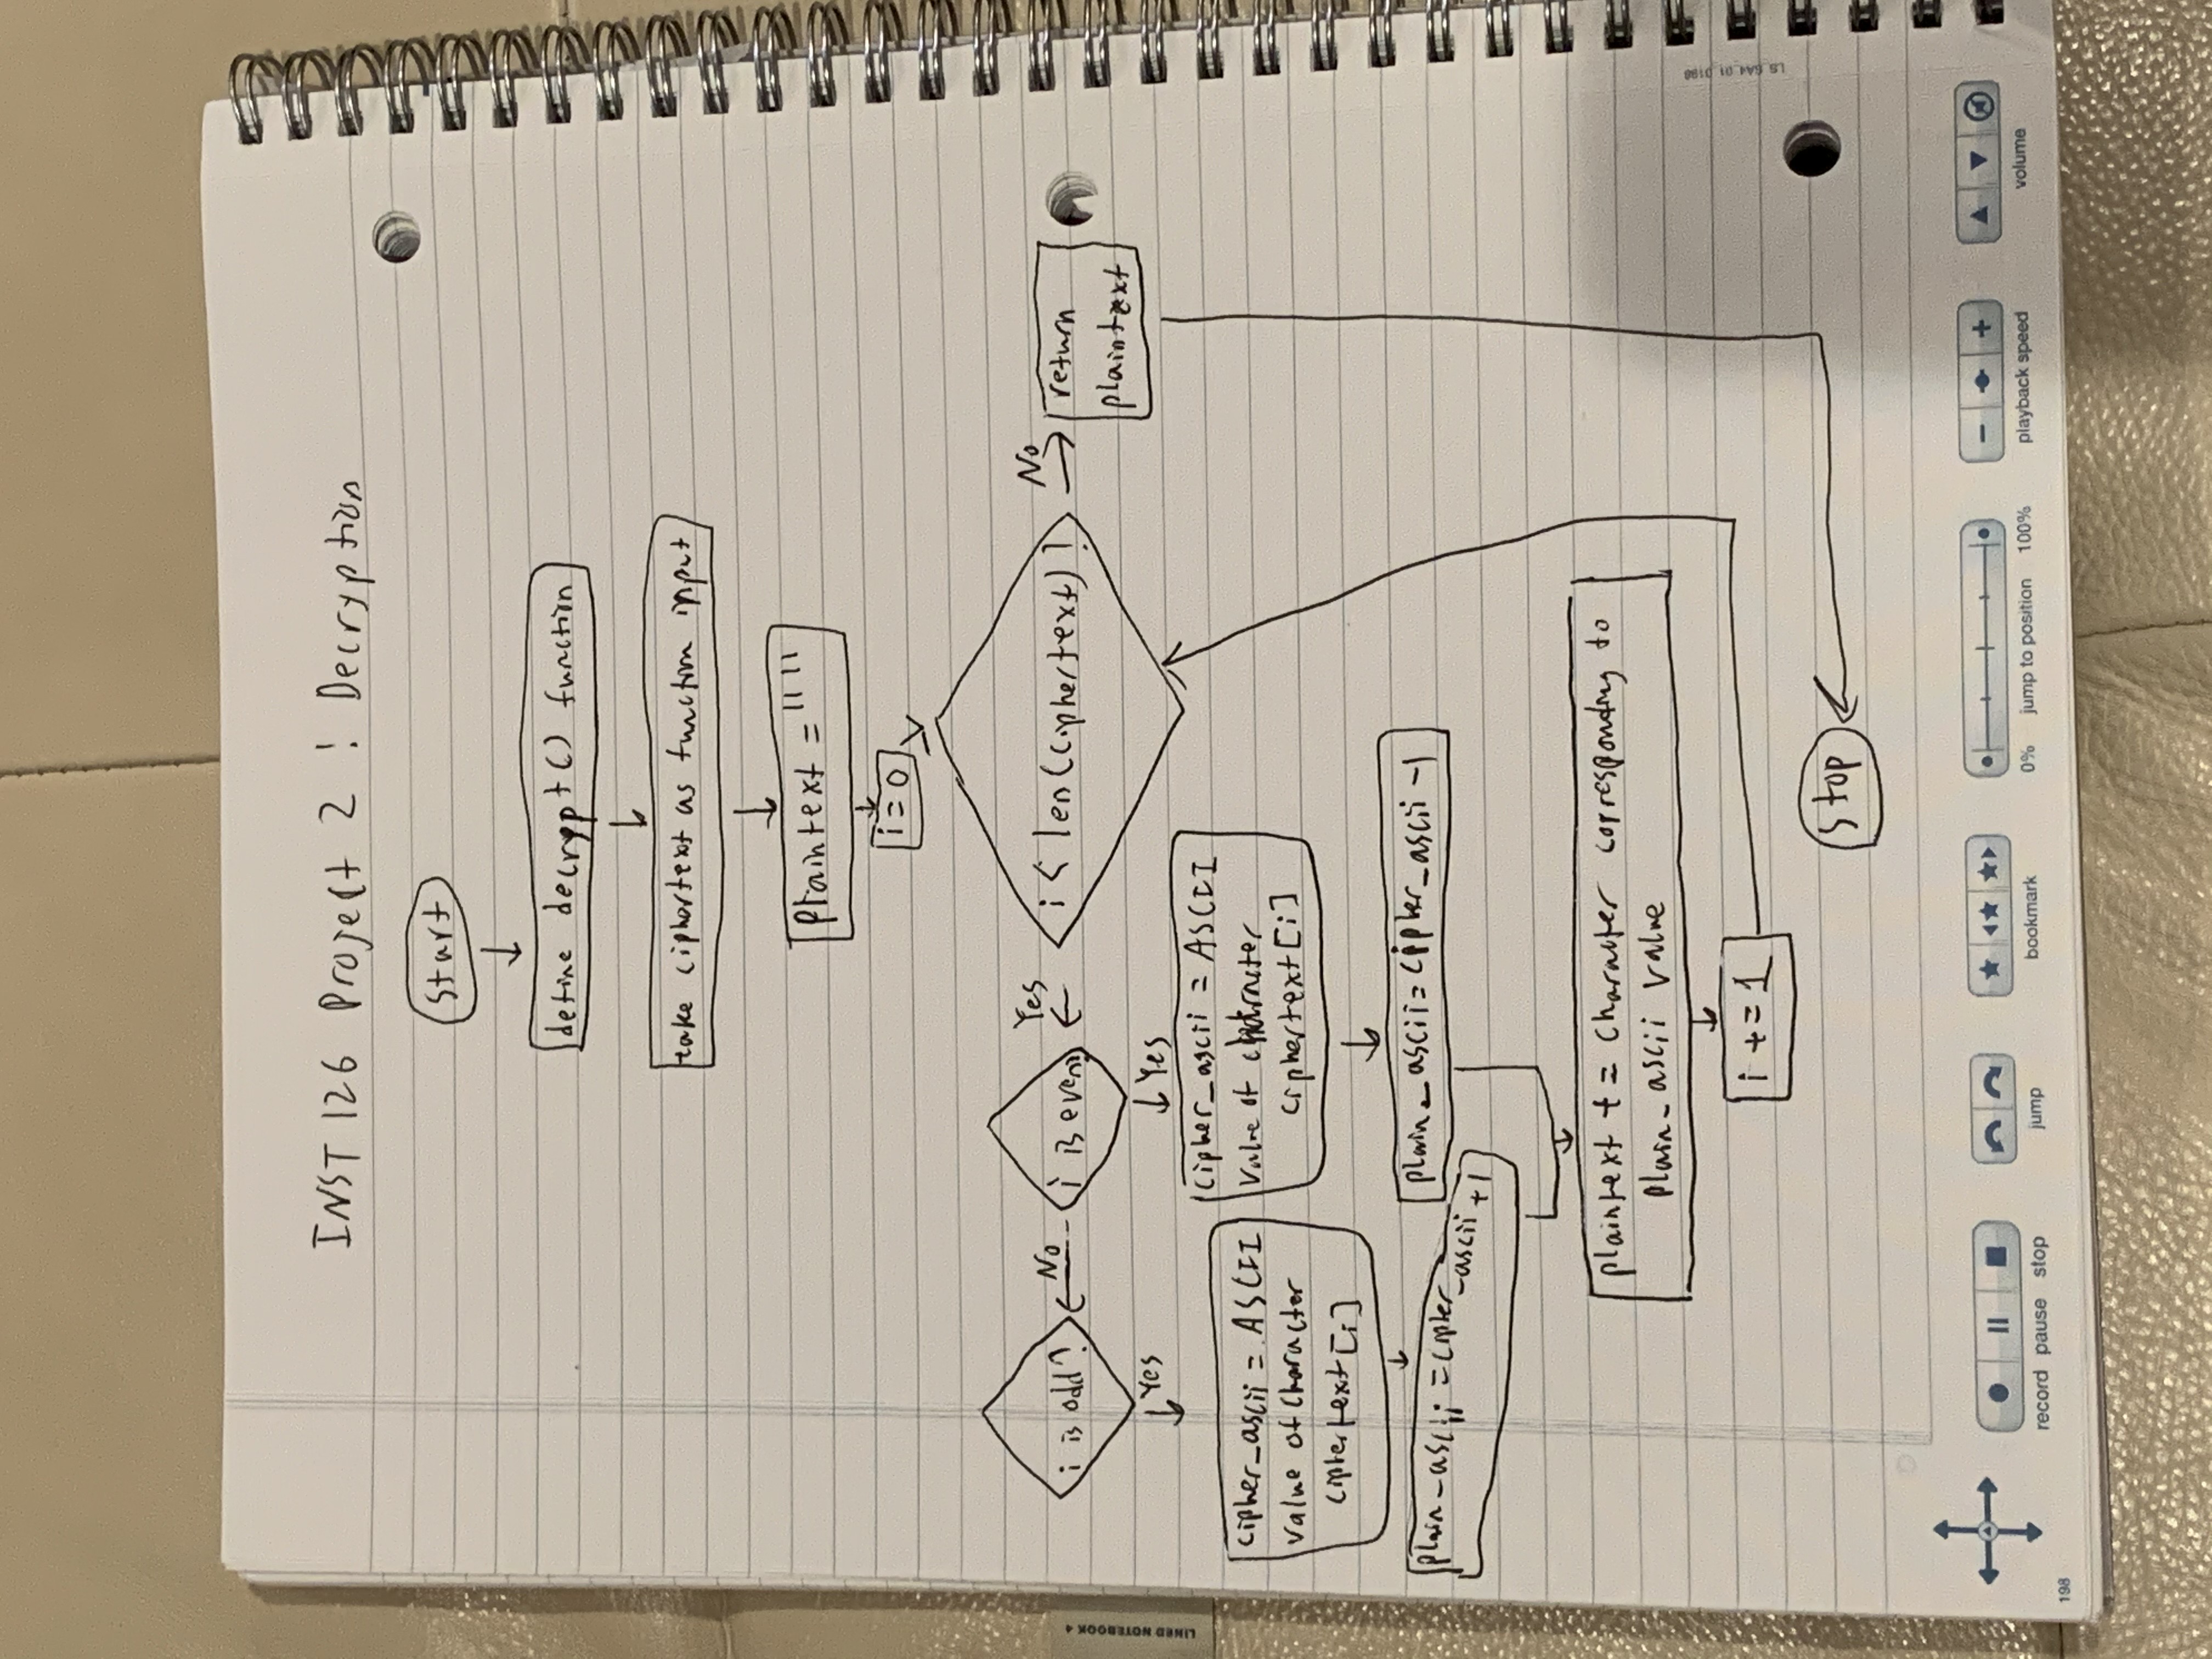 INST 126 Project 2 : Decryption
start
define decrypt() function
take ciphertext as function input
plaintext = ""
i = 0
i < len(ciphertext)?
Yes
No
return
plaintext
i is even?
No
i is odd?
Yes
Yes
cipher_ascii = ASCII
value of character
ciphertext[i]
cipher_ascii = ASCII
value of character
ciphertext[i]
plain_ascii = cipher_ascii - 1
plain_ascii = cipher_ascii + 1
plaintext += character corresponding to
plain_ascii value
i += 1
stop
LINED NOTEBOOK 4
record pause stop
jump
bookmark
0% jump to position 100%
playback speed
volume
198